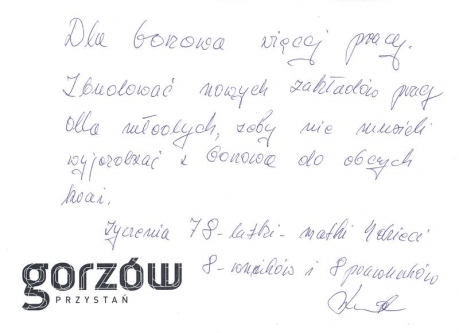 Dla Gorzowa więcej pracy.
Zbudować nowych zakładów pracy
dla młodych, żeby nie musieli
wyjeżdżać z Gorzowa do obcych
krai.
Życzenia 78-latki - matki 4 dzieci
8-wnuków i 8 prawnuków
gorzów
PRZYSTAŃ